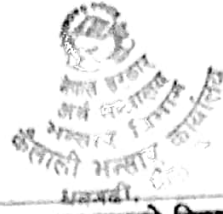 नेपाल सरकार
अर्थ मन्त्रालय
भन्सार विभाग
कैलाली भन्सार कार्यालय
धनगढी.